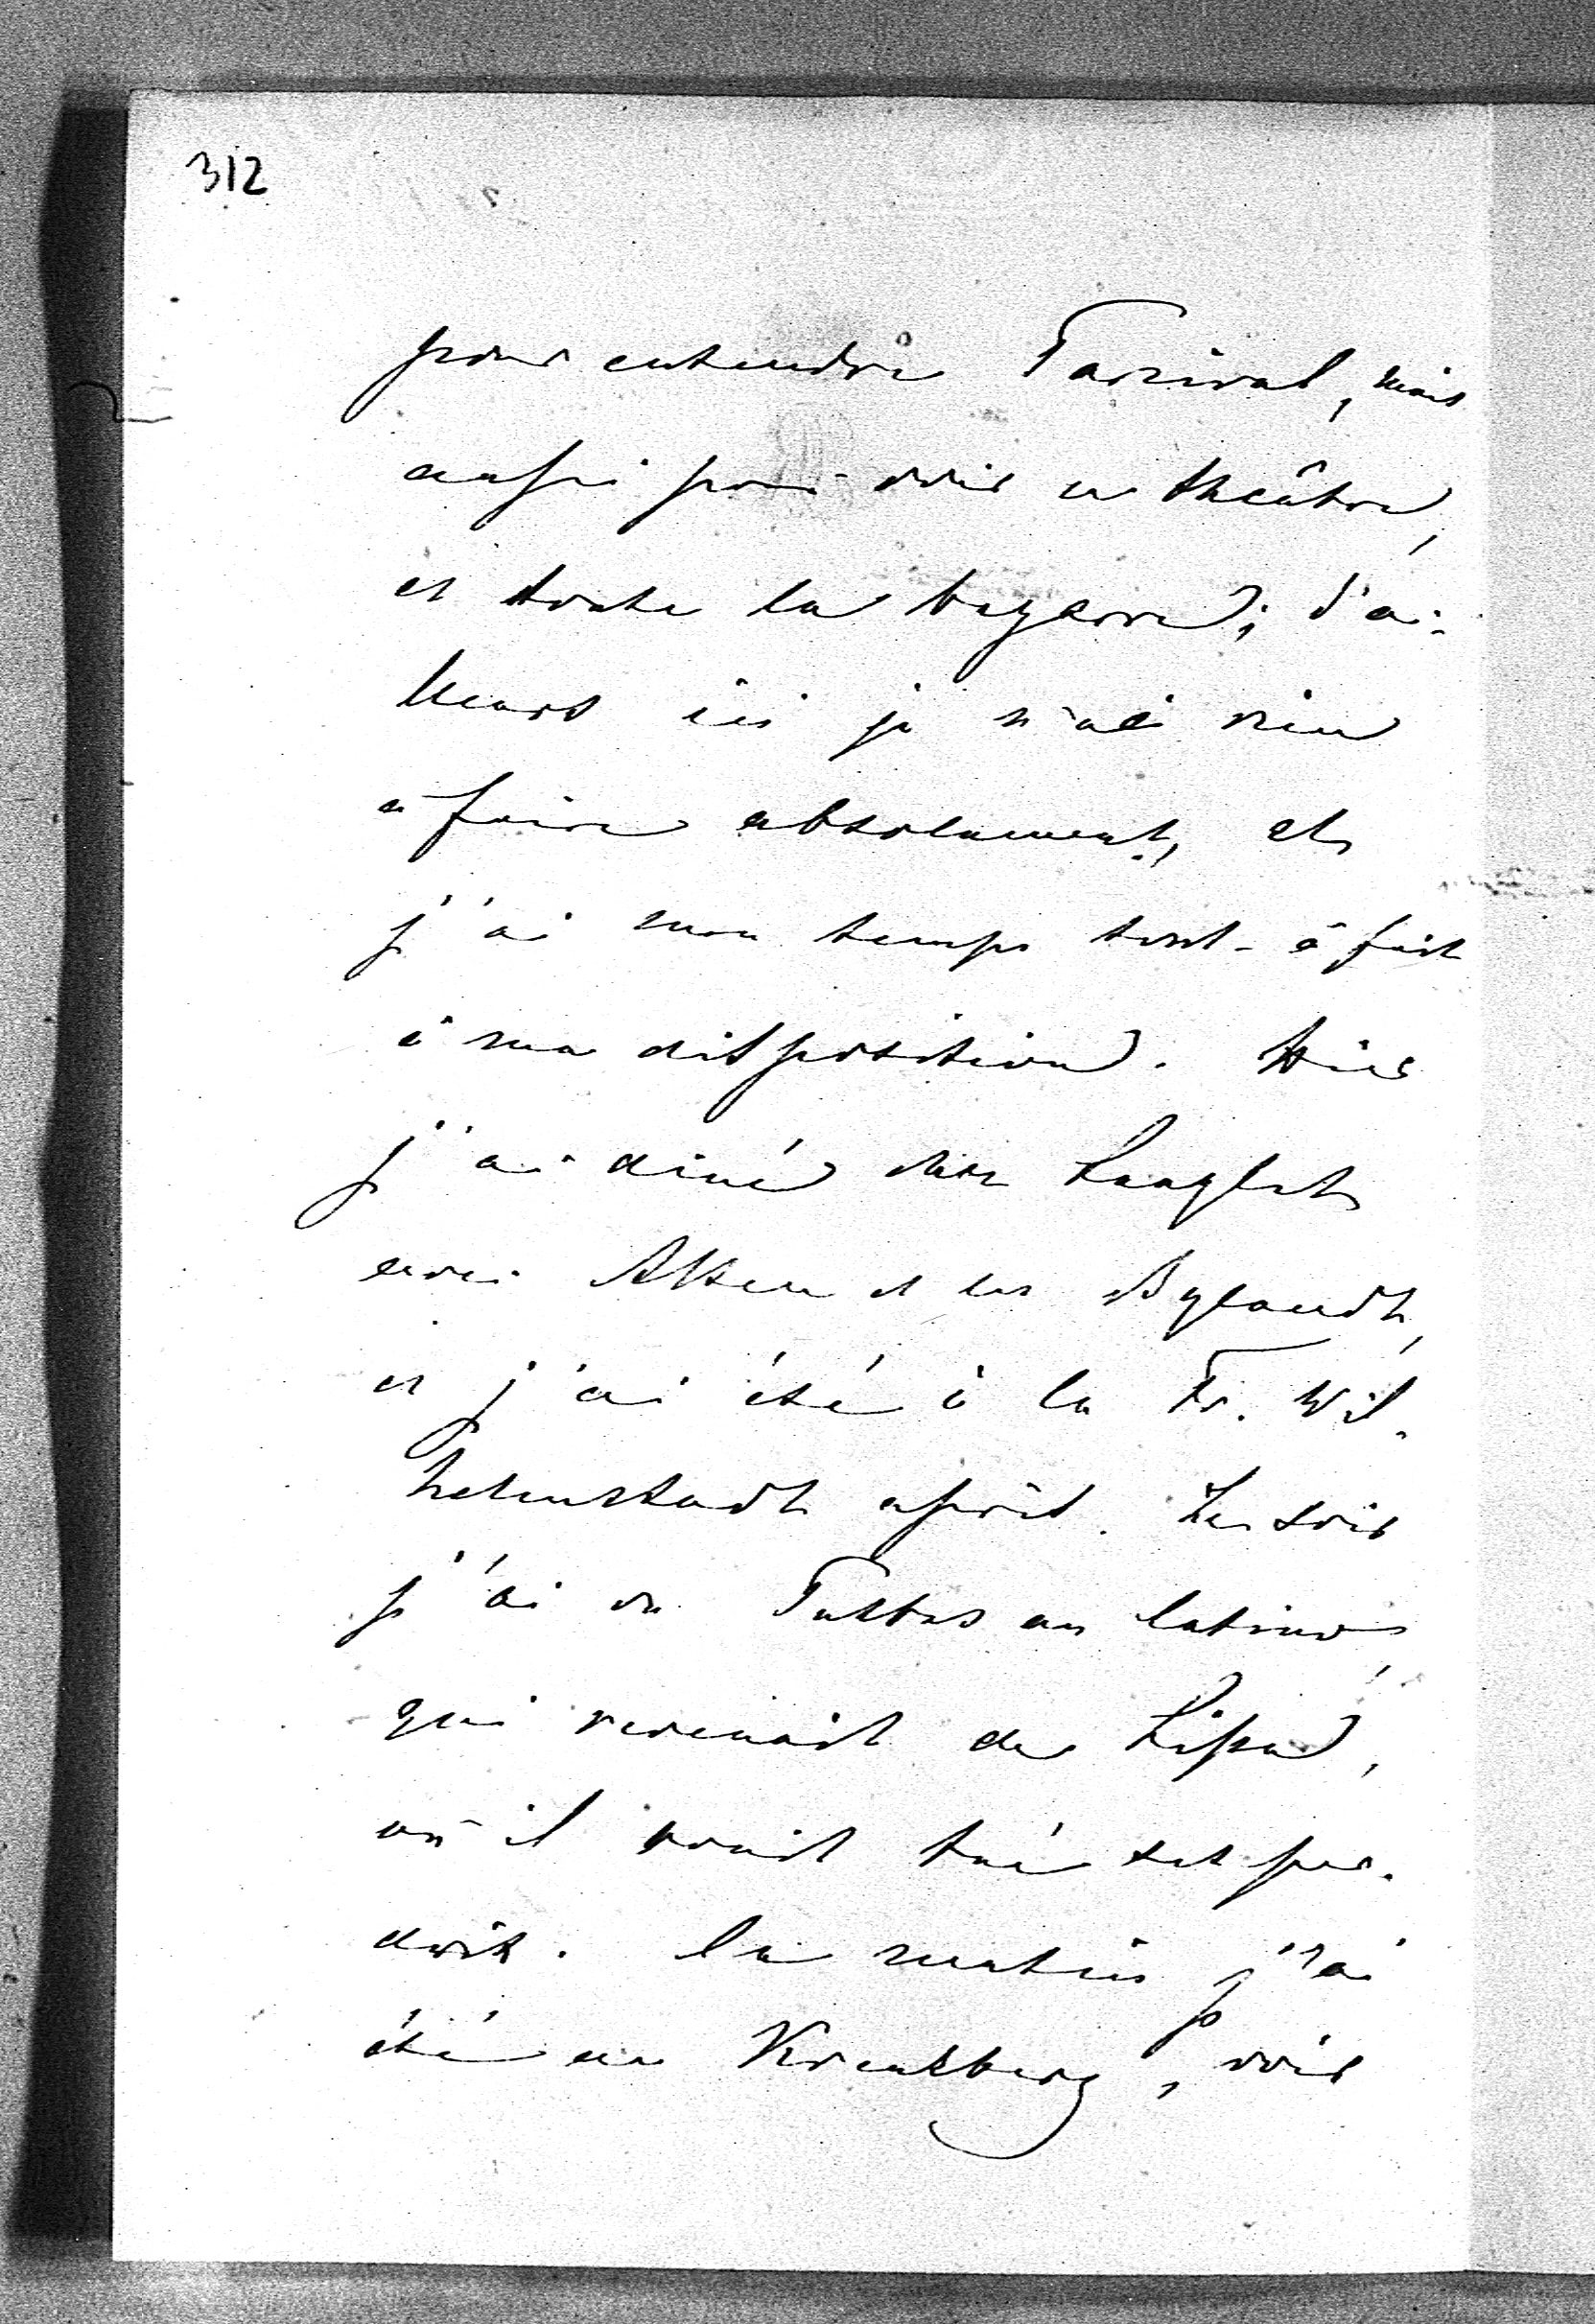 312
pour entendre Parzival, mais
aussi pour voir ce théâtre,
et toute la bagarre; d'ai-
lleurs ici je n'ai rien
à faire absolument, et
j'ai mon temps tout-à-fait
à ma disposition. Hier
j'ai diné chez
avec et les Bylandt,
et j'ai été à la Fr. Wil-
helmstadt après. Le soir
j'ai vu au
qui revenait de Lissa,
où il avait tué sept per-
drix. Le matin j'ai
été au Kreuzberg, voir